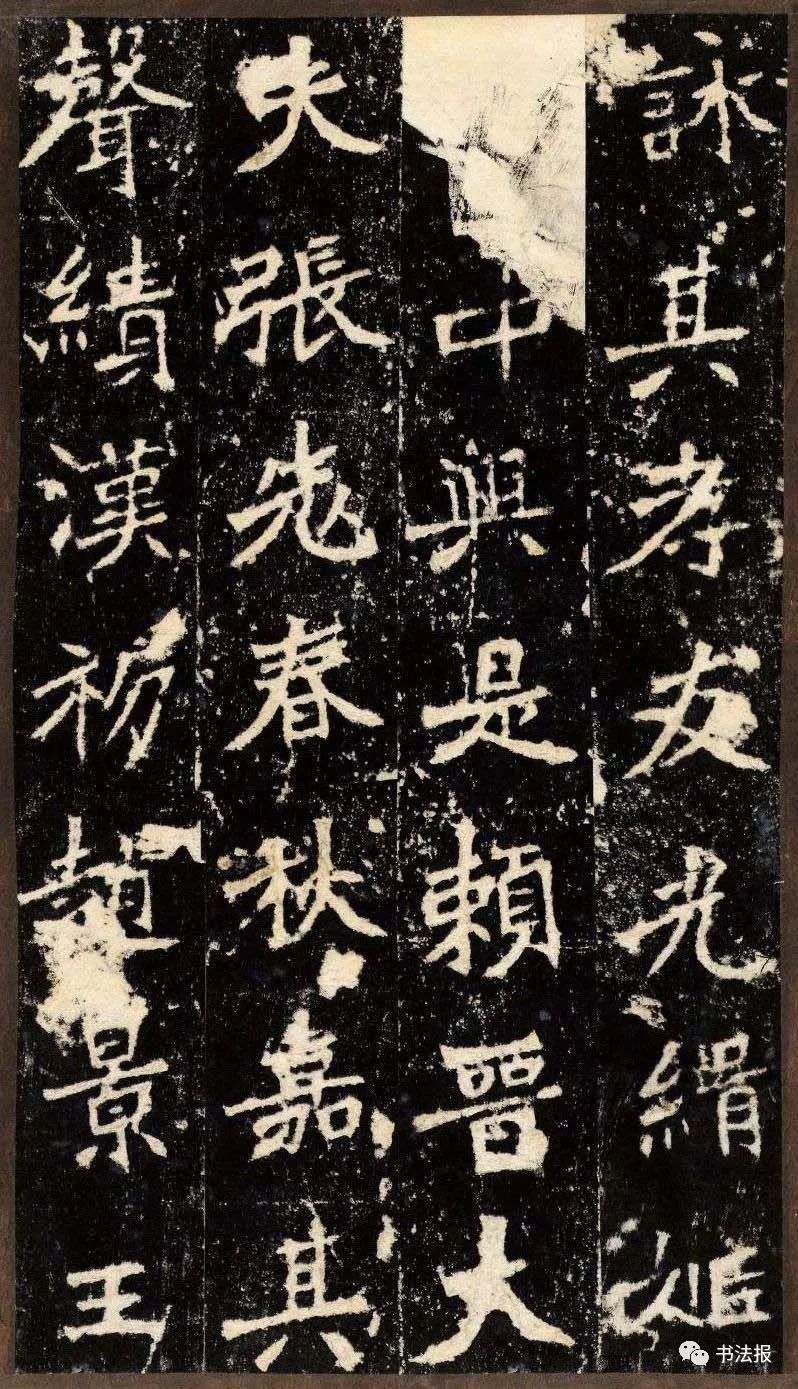 詠其孝友光緝姬
中興是賴晉大
夫張老春秋嘉其
聲績漢初趙景王
书法报